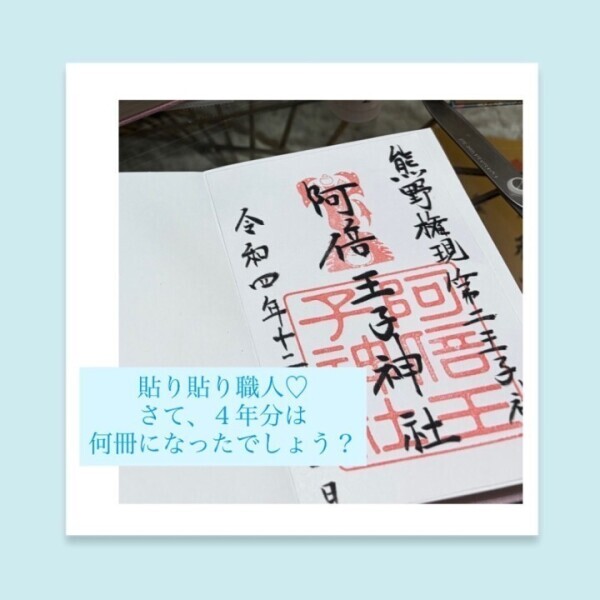 熊野権現第二王子社
阿倍王子神社
令和四年十二
日
阿倍王
子神社
貼り貼り職人♡
さて、４年分は
何冊になったでしょう？